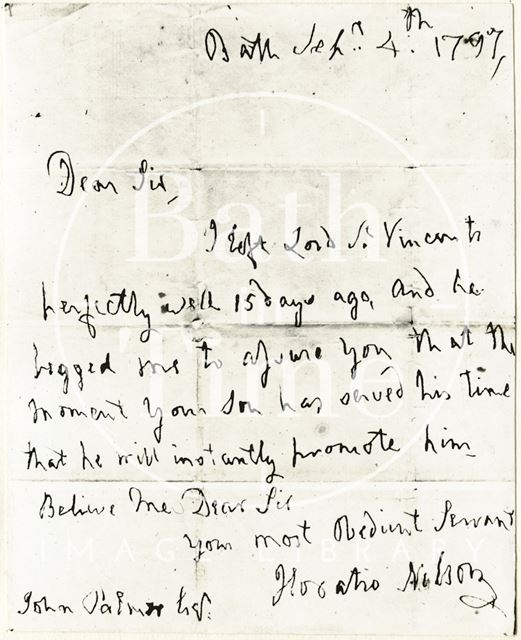 Bath Sepr. 4th. 1797,
Dear Sir,
I left Lord St Vincents
perfectly well 15 days ago, and he
begged me to assure you that the
moment your son has served his time
that he will instantly promote him
Believe Me Dear Sir
your most Obedient Servant
Horatio Nelson
John Palmer Esqr.
Bath
in
Time
IMAGE LIBRARY